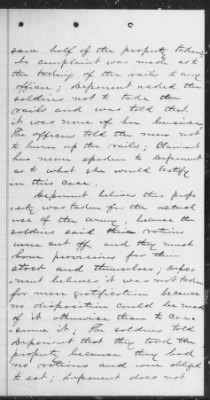 saw half of the property taken;
No complaint was made as to
the taking of the rails to any
officer; Deponent asked the
soldiers not to take the
rails and was told that
it was none of her business
The officers told the men not
to burn up the rails; Claimant
has never spoken to Deponent
as to what she would testify
in this case.
Deponent believes this prop-
erty was taken for the actual
use of the army, because the
soldiers said their rations
were cut off and they must
have provisions for their
stock and themselves; Depo-
nent believes it was not taken
for mere gratification because
no disposition could be made
of it otherwise than to con-
sume it; The soldiers told
Deponent that they took the
property because they had
no rations and were obliged
to eat; Deponent does not